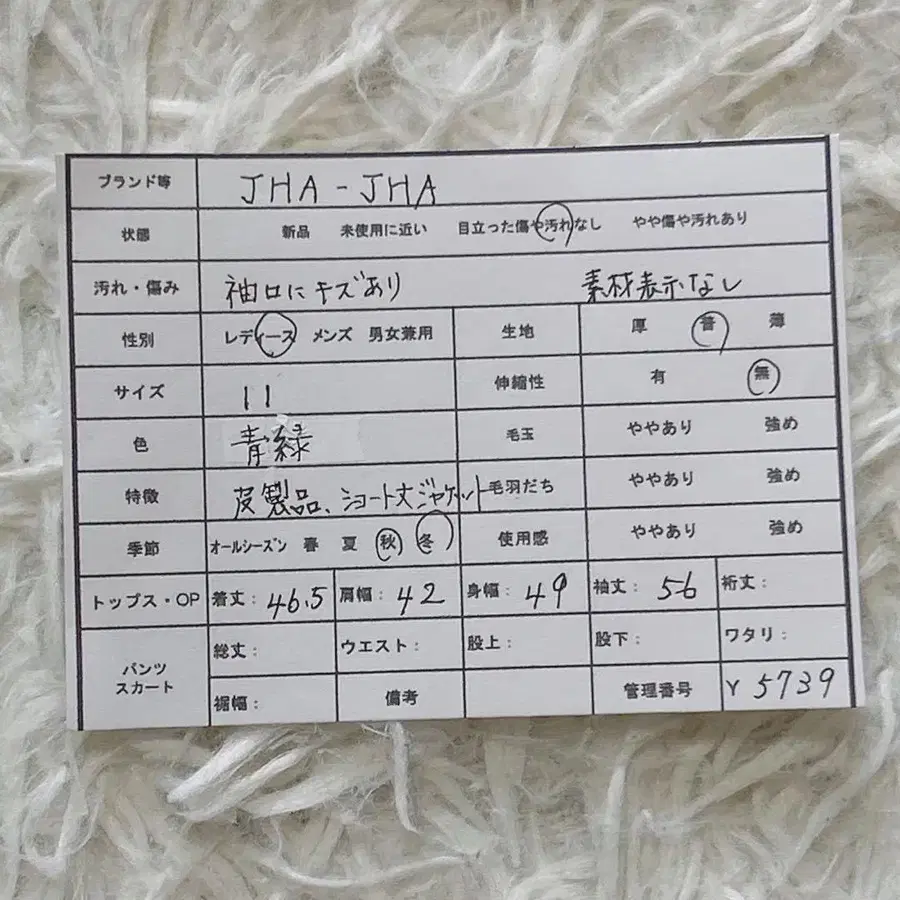 ブランド等 JHA-JHA
状態 新品 未使用に近い 目立った傷や汚れなし やや傷や汚れあり
汚れ・傷み 袖口にキズあり 素材表示なし
性別 レディース メンズ 男女兼用 生地 厚 普 薄
サイズ 11 伸縮性 有 無
色 青緑 毛玉 ややあり 強め
特徴 皮製品、ショート丈ジャケット 毛羽だち ややあり 強め
季節 オールシーズン 春 夏 秋 冬 使用感 ややあり 強め
トップス・OP 着丈: 46.5 肩幅: 42 身幅: 49 袖丈: 56 裄丈:
パンツ
スカート
総丈: ウエスト: 股上: 股下: ワタリ:
裾幅: 備考 管理番号 Y 5739